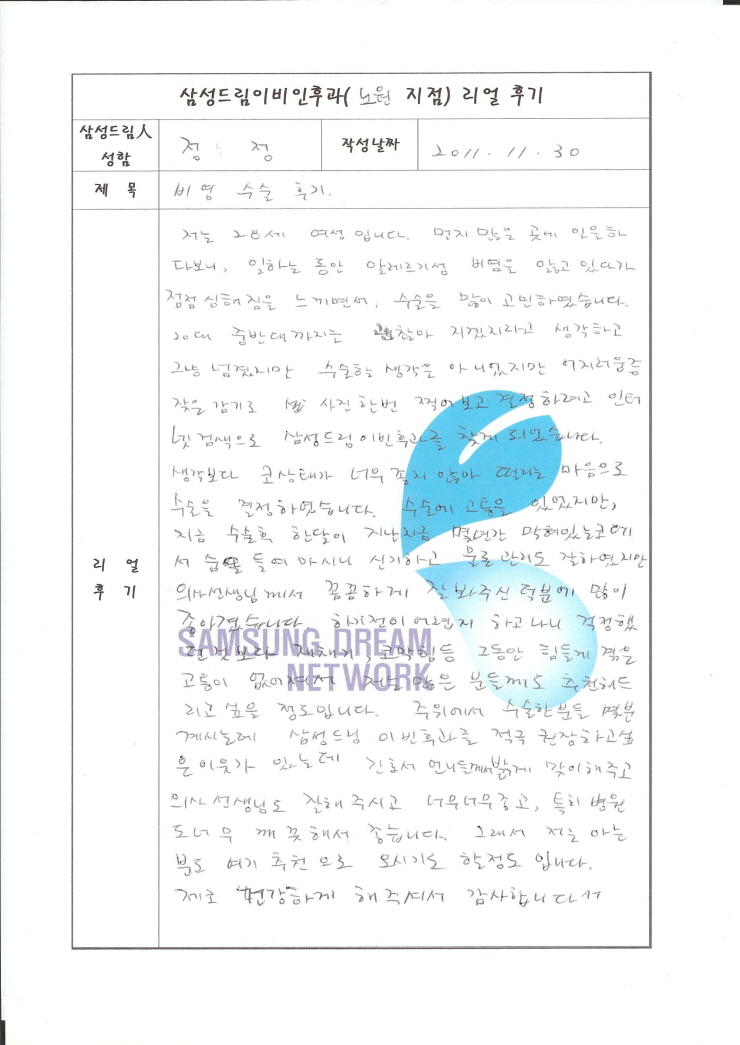 삼성드림이비인후과( 노원 지점) 리얼 후기
삼성드림人 성함
정 정
작성날짜
2011. 11. 30
제 목
비염 수술 후기.
리 얼 후 기
저는 28세 여성입니다. 먼지 많은 곳에 일을하
다보니, 일하는 동안 알레르기성 비염을 앓고 있다가
점점심해짐을 느끼면서, 수술을 많이 고민하였습니다.
20대 중반대까지는 괜찮아 지겠지라고 생각하고
그냥 넘겼지만 수술할 생각은 아니었지만 어지러움증
잦은 감기로 사진한번 찍어보고 결정하려고 인터
넷검색으로 삼성드림이빈후과를 찾게 되었습니다.
생각보다 코상태가 너무 좋지 않아 떨리는 마음으로
수술을 결정하였습니다. 수술에 고통은 있었지만,
지금 수술후 한달이 지난지금 몇년간 막혀있는코에
서 숨을 들여마시니 신기하고 물론 관리도 잘하였지만
의사선생님께서 꼼꼼하게 잘봐주신 덕분에 많이
좋아졌습니다 하기전이 어려운지 하고나니 걱정했
던것보다 재채기, 코막힘등 그동안 힘들게 겪은
고통이 없어져서 저날 많은 분들께도 추천해드
리고 싶을 정도입니다. 주위에서 수술한분들 몇분
계시는데 삼성드림 이빈후과를 적극 권장하고싶
은이웃가 있는데 간호서 언니들께서 밝게 맞이해주고
의사선생님도 잘해주시고 너무너무좋고, 특히 병원
도너무 깨끗해서 좋습니다. 그래서 저는 아는
분도 여기 추천으로 오시기도 할정도 입니다.
제코 건강하게 해주셔서 감사합니다서
SAMSUNG DREAM
NETWORK